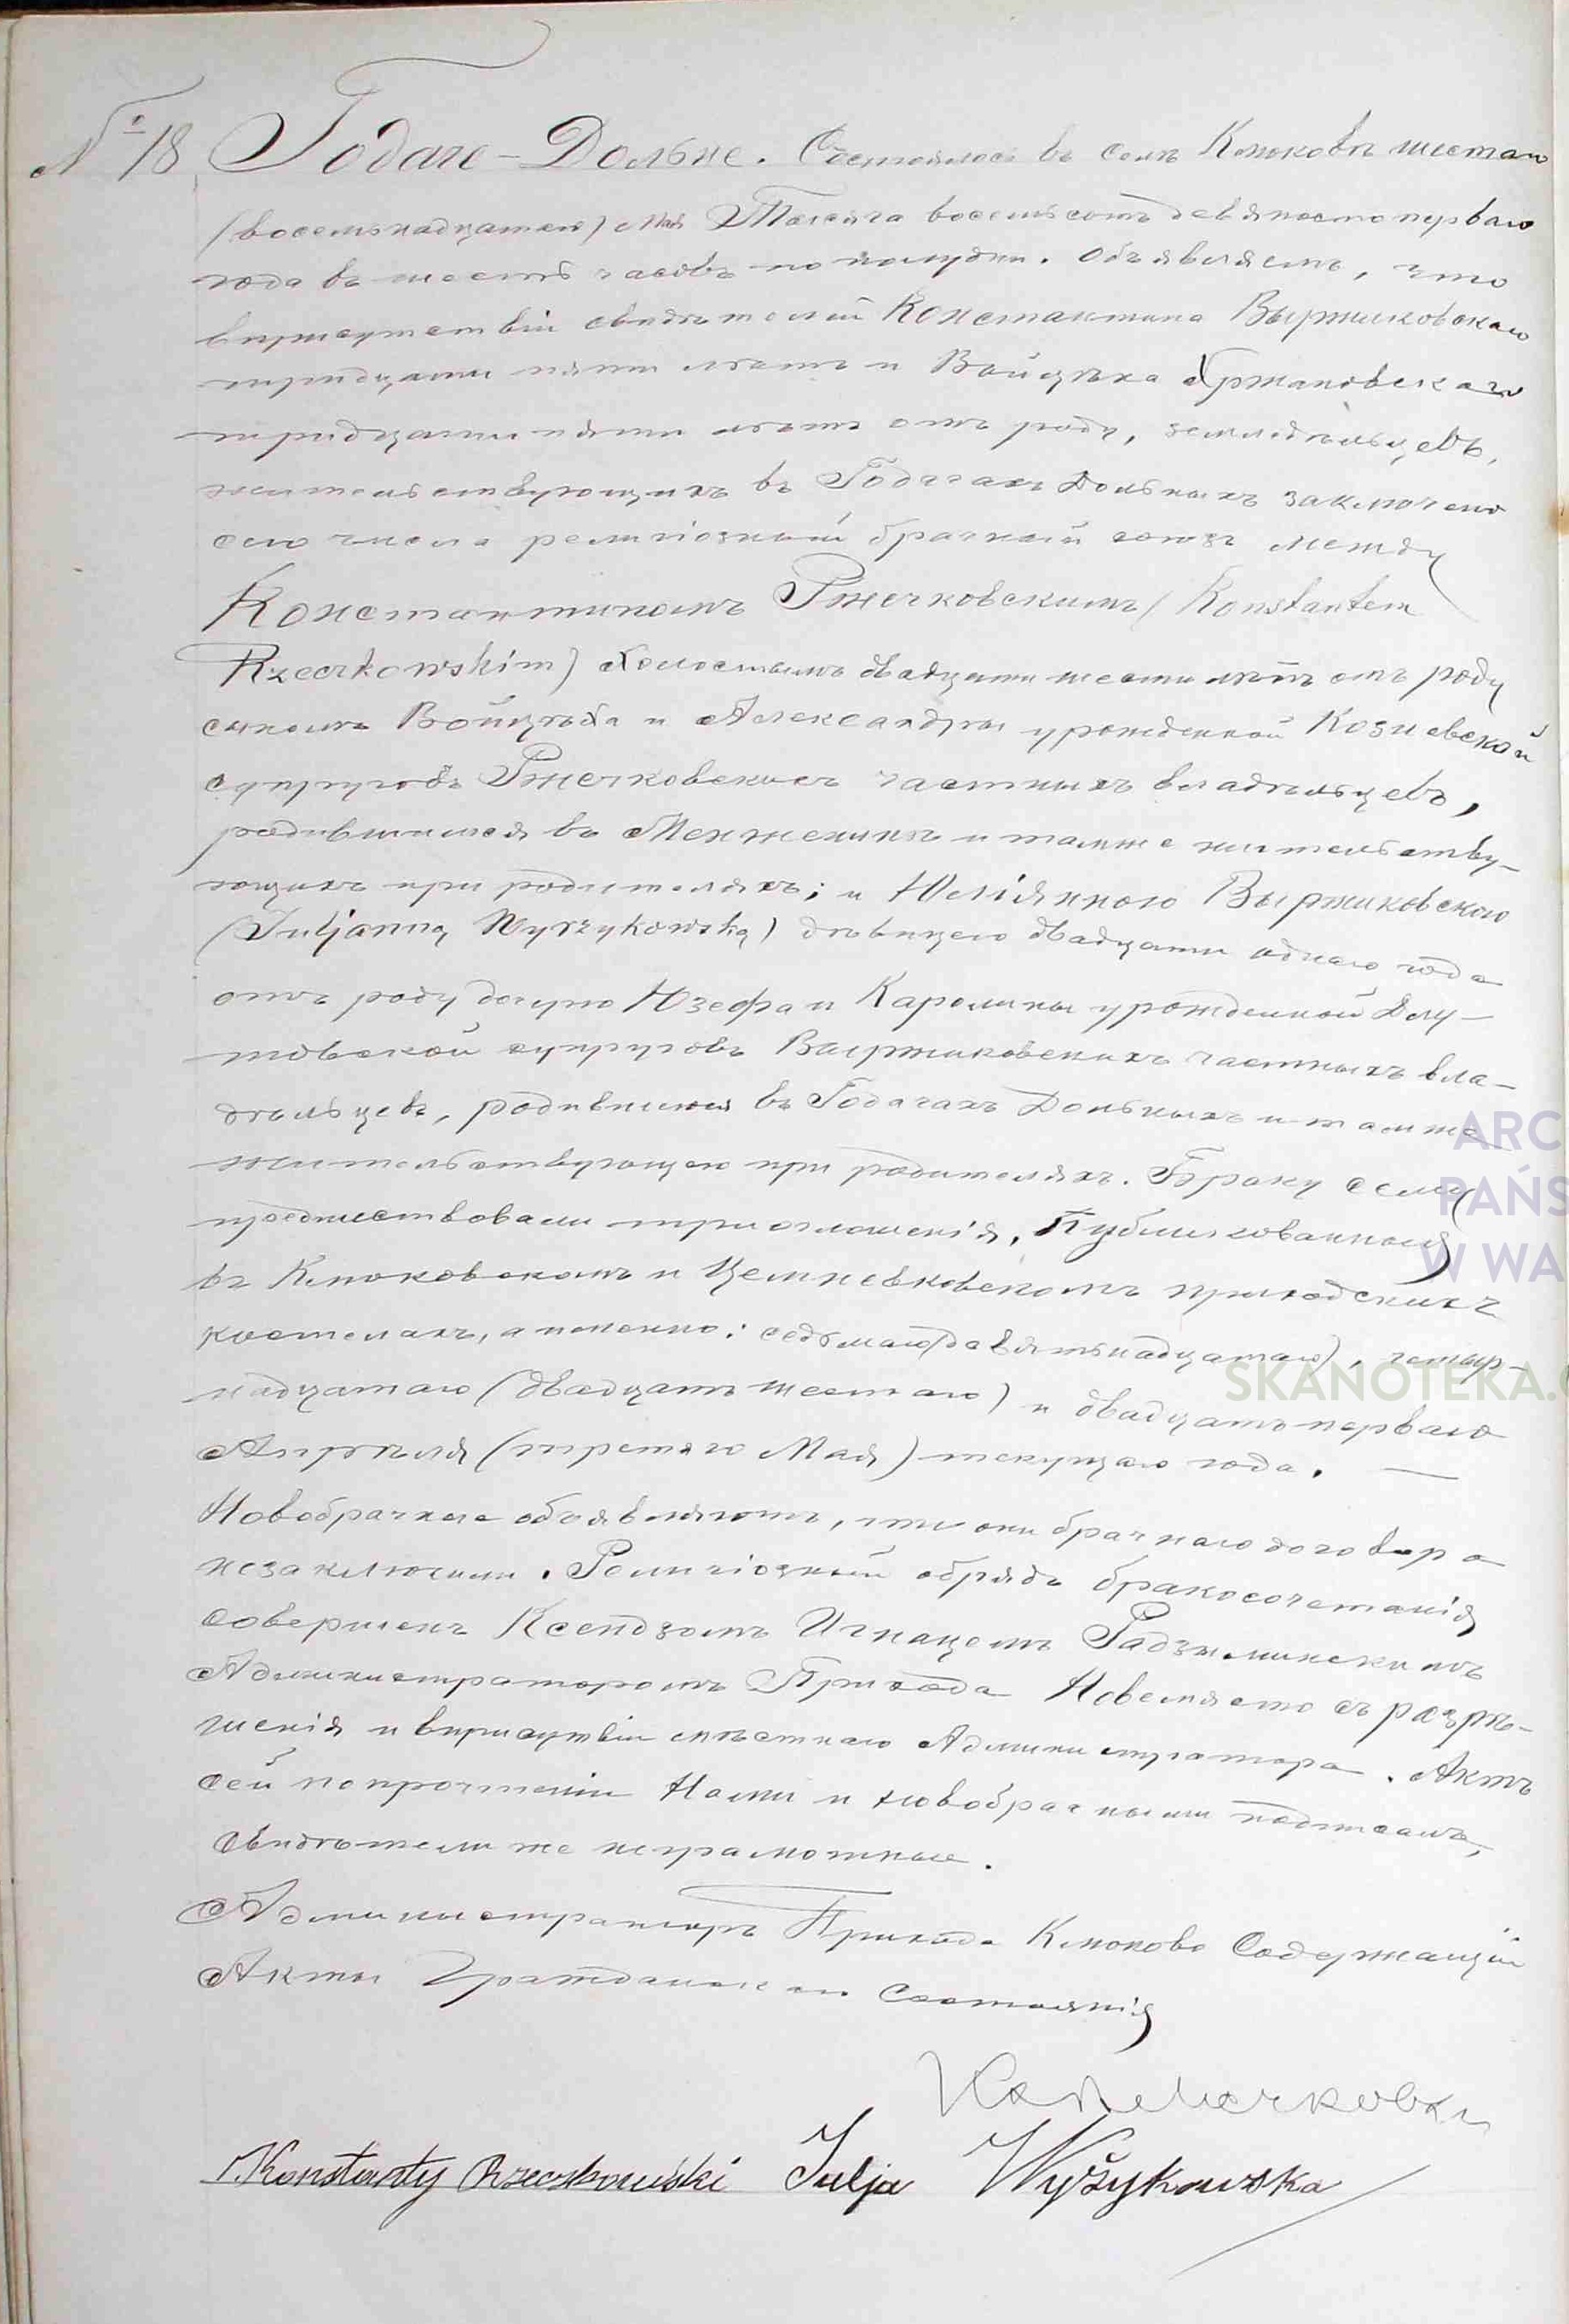 № 18 Годаче-Дольне. Состоялось въ селѣ Клюковѣ шестаго
(восемьнадцатаго) Мая Тысяча восемьсотъ девяносто перваго
года въ шесть часовъ по полудни. Объявляемъ, что
вприсутствіи свидѣтелей Константина Выржиковскаго
тридцати пяти лѣтъ и Войцѣха Хржановскаго
тридцати пяти лѣтъ отъ роду, земледѣльцевъ,
жительствующихъ въ Годачахъ Дольныхъ заключено
сего числа религіозный брачный союзъ между
Константиномъ Ржечковскимъ (Konstantem
Rzeczkowskim) Холостымъ двадцати шести лѣтъ отъ роду
сыномъ Войцѣха и Александры урожденной Козиевской
супруговъ Ржечковскихъ частныхъ владѣльцевъ,
родившимся въ Менженинѣ и тамже жительству-
ющихъ при родителяхъ; и Юліянною Выржиковскою
(Juljanną Wyrzykowską) дѣвицею двадцати одного года
отъ роду дочерью Юзефа и Каролины урожденной Длу-
товской супруговъ Выржиковскихъ частныхъ вла-
дѣльцевъ, родившеюся въ Годачахъ Дольныхъ и тамже
жительствующею при родителяхъ. Браку сему
предшествовали три оглашенія, Публикованныя
въ Клюковскомъ и Цемневковскомъ приходскихъ
костелахъ, а именно: седьмаго (девятьнадцатаго), четыр-
надцатаго (двадцать шестаго) и двадцать перваго
Апрѣля (третяго Мая) текущаго года. —
Новобрачные объявляютъ, что они брачнаго договора
незаключили. Религіозный обрядъ бракосочетанія
совершенъ Ксендзомъ Игнацемъ Радзиминскимъ
Администраторомъ Прихода Новемясто съ разрѣ-
шенія и вприсутвіи мѣстнаго Администратора. Актъ
сей по прочтеніи Нами и новобрачными подписанъ,
свидѣтели же неграмотные.
Администраторъ Прихода Клюково Содержащій
Акты Гражданскаго Состоянія
Konstanty Rzeczkowski Julja Wyżykowska
ARC
PAŃS
W WA
SKANOTEKA.